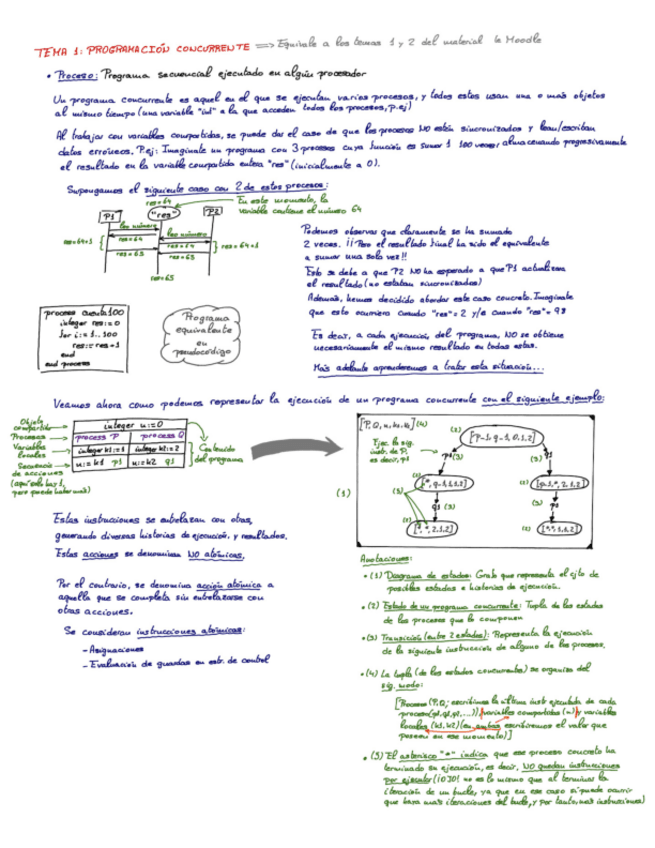 TEMA 1: PROGRAMACIÓN CONCURRENTE => Equivale a los temas 1 y 2 del material de Moodle
• Proceso: Programa secuencial ejecutado en algún procesador
Un programa concurrente es aquel en el que se ejecutan varios procesos, y todos estos usan uno o más objetos
al mismo tiempo (una variable "int" a la que acceden todos los procesos, p.ej)
Al trabajar con variables compartidas, se puede dar el caso de que los procesos NO estén sincronizados y lean/escriban
datos erróneos. P.ej: Imagínate un programa con 3 procesos cuya función es sumar 1 100 veces, almacenando progresivamente
el resultado en la variable compartida entera "res" (inicialmente a 0).
Supongamos el siguiente caso con 2 de estos procesos:
res=64
En este momento, la
variable contiene el número 64
P1
"res"
P2
leo número
res=64
leo número
res=64
res=64+1
res=64+1
res=65
res=65
res=65
Podemos observar que claramente se ha sumado
2 veces. ¡¡Pero el resultado final ha sido el equivalente
a sumar una sola vez!!
Esto se debe a que P2 NO ha esperado a que P1 actualizara
el resultado (no estaban sincronizados)
Además, hemos decidido abordar este caso concreto. Imagínate
que esto ocurriera cuando "res"=2 y/o cuando "res"=98
Es decir, a cada ejecución del programa, NO se obtiene
necesariamente el mismo resultado en todas estas.
Más adelante aprenderemos a tratar esta situación...
process cuenta100
integer res:=0
for i:=1..100
res:=res+1
end
end process
Programa
equivalente
en
pseudocódigo
Veamos ahora como podemos representar la ejecución de un programa concurrente con el siguiente ejemplo:
Objeto
compartido
Procesos
Variables
locales
Secuencia
de acciones
(aquí solo hay 1,
pero puede haber más)
integer n:=0
process P
process Q
integer k1:=1
integer k2:=2
n:=k1 p1
n:=k2 q1
Contenido
del programa
(1)
[P,Q, n, k1, k2] (4)
(2)
[p-1, q-1, 0,1,2]
Ejec. la sig.
instr. de P,
es decir, p1
p1 (3)
q1
(2)
[*, q-1, 1,1,2]
(2)
[p-1, *, 2,1,2]
(5)
q1 (3)
(3)
p1
(2)
[*,*,2,1,2]
(2)
[*,*,1,1,2]
Estas instrucciones se entrelazan con otras,
generando diversas historias de ejecución, y resultados.
Estas acciones se denominan NO atómicas.
Por el contrario, se denomina acción atómica a
aquella que se completa sin entrelazarse con
otras acciones.
Se consideran instrucciones atómicas:
- Asignaciones
- Evaluación de guardas en estr. de control
Anotaciones:
• (1) Diagrama de estados: Grafo que representa el cjto de
posibles estados e historias de ejecución.
• (2) Estado de un programa concurrente: Tupla de los estados
de los procesos que lo componen
• (3) Transición (entre 2 estados): Representa la ejecución
de la siguiente instrucción de alguno de los procesos.
• (4) La tupla (de los estados concurrentes) se organiza del
sig. modo:
[Procesos (P,Q; escribimos la última instr ejecutada de cada
proceso(p1,q1,p2,...)), variables compartidas (n) y variables
locales (k1,k2)(en ambas escribiremos el valor que
poseen en ese momento)]
• (5) El asterisco "*" indica que ese proceso concreto ha
terminado su ejecución, es decir, NO quedan instrucciones
por ejecutar (¡OJO! no es lo mismo que al terminar la
iteración de un bucle, ya que en ese caso sí puede ocurrir
que haya más iteraciones del bucle, y por tanto, más instrucciones)